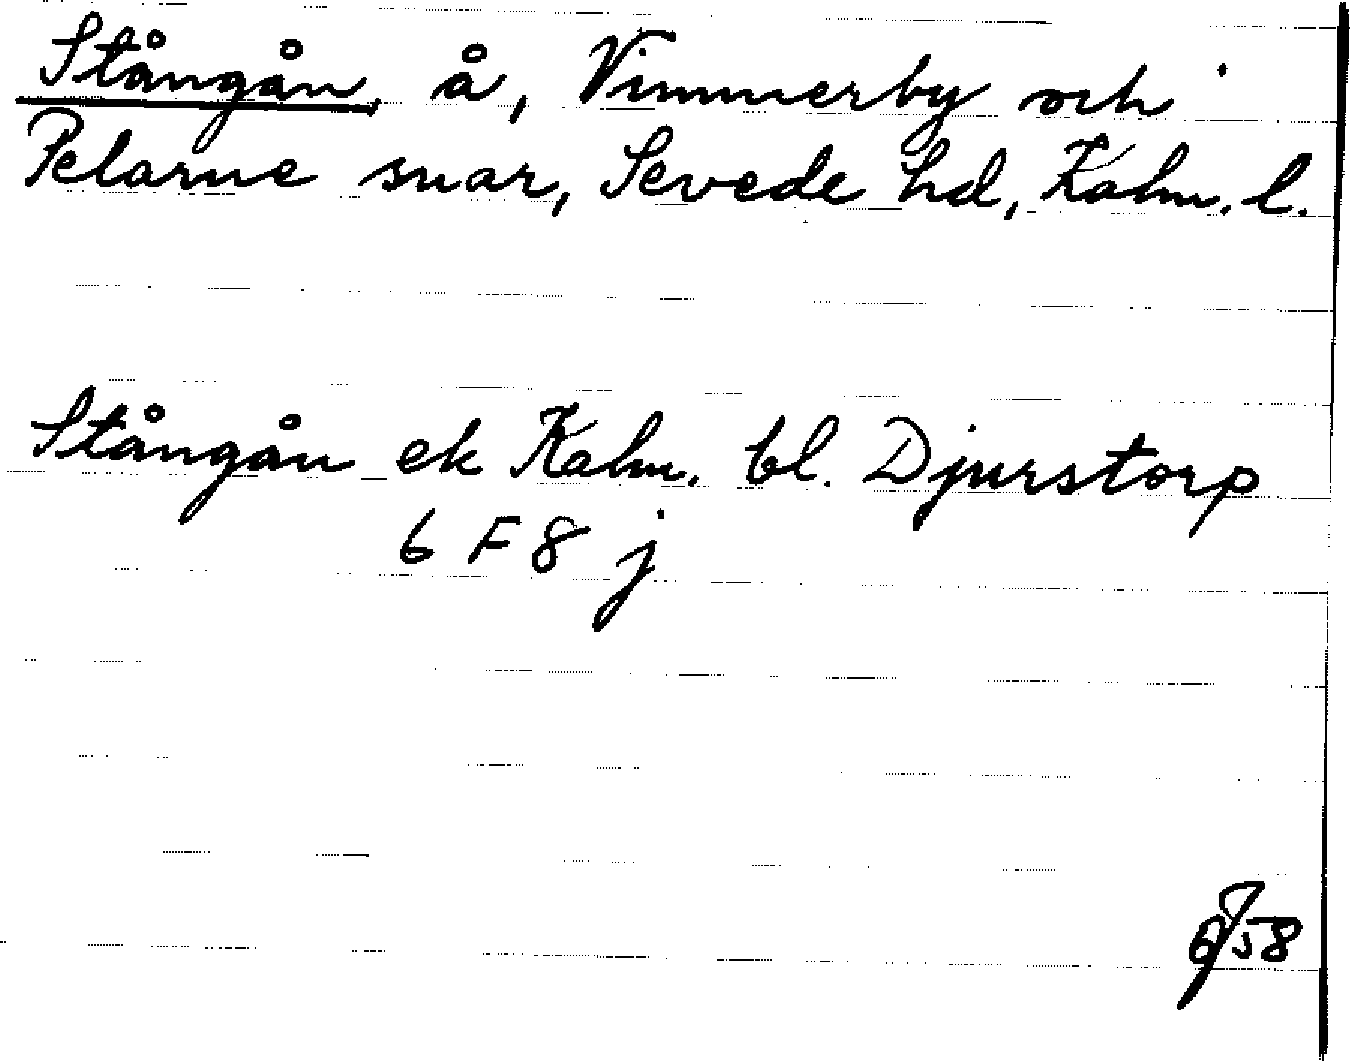 Stångån, å, Vimmerby och
Pelarne snar, Sevede hd, Kalm. l.
Stångån ek Kalm. bl. Djurstorp
6 F 8 j
58